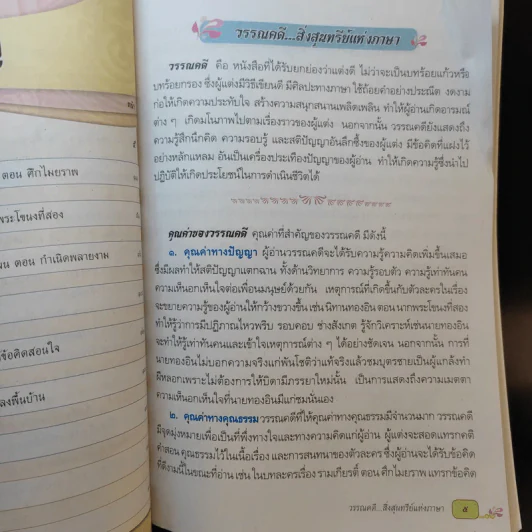 ตอน ศึกไมยราพ
พระโขนงที่สอง
ตอน กำเนิดพลายงาม
ข้อคิดสอนใจ
ลงพื้นบ้าน
วรรณคดี...สิ่งสุนทรีย์แห่งภาษา
วรรณคดี คือ หนังสือที่ได้รับยกย่องว่าแต่งดี ไม่ว่าจะเป็นบทร้อยแก้วหรือ
บทร้อยกรอง ซึ่งผู้แต่งมีวิธีเขียนดี มีศิลปะทางภาษา ใช้ถ้อยคำอย่างประณีต งดงาม
ก่อให้เกิดความประทับใจ สร้างความสนุกสนานเพลิดเพลิน ทำให้ผู้อ่านเกิดอารมณ์
ต่าง ๆ เกิดมโนภาพไปตามเรื่องราวของผู้แต่ง นอกจากนั้น วรรณคดียังแสดงถึง
ความรู้สึกนึกคิด ความรอบรู้ และสติปัญญาอันลึกซึ้งของผู้แต่ง มีข้อคิดที่แฝงไว้
อย่างหลักแหลม อันเป็นเครื่องประเทืองปัญญาของผู้อ่าน ทำให้เกิดความรู้ซึ่งนำไป
ปฏิบัติให้เกิดประโยชน์ในการดำเนินชีวิตได้
คุณค่าของวรรณคดี คุณค่าที่สำคัญของวรรณคดี มีดังนี้
๑. คุณค่าทางปัญญา ผู้อ่านวรรณคดีจะได้รับความรู้ความคิดเพิ่มขึ้นเสมอ
ซึ่งมีผลทำให้สติปัญญาแตกฉาน ทั้งด้านวิทยาการ ความรู้รอบตัว ความรู้เท่าทันคน
ความเห็นอกเห็นใจต่อเพื่อนมนุษย์ด้วยกัน เหตุการณ์ที่เกิดขึ้นกับตัวละครในเรื่อง
จะขยายความรู้ของผู้อ่านให้กว้างขวางขึ้น เช่น นิทานทองอิน ตอน นากพระโขนงที่สอง
ทำให้รู้ว่าการมีปฏิภาณไหวพริบ รอบคอบ ช่างสังเกต รู้จักวิเคราะห์เช่นนายทองอิน
จะทำให้รู้เท่าทันคนและเข้าใจเหตุการณ์ต่าง ๆ ได้อย่างชัดเจน นอกจากนั้น การที่
นายทองอินไม่บอกความจริงแก่พันโชติว่าแท้จริงแล้วชมบุตรชายเป็นผู้แกล้งทำ
ผีหลอกเพราะไม่ต้องการให้บิดามีภรรยาใหม่นั้น เป็นการแสดงถึงความเมตตา
ความเห็นอกเห็นใจที่นายทองอินมีแก่ชมนั่นเอง
๒. คุณค่าทางคุณธรรม วรรณคดีที่ให้คุณค่าทางคุณธรรมมีจำนวนมาก วรรณคดี
มีจุดมุ่งหมายเพื่อเป็นที่พึ่งทางใจและทางความคิดแก่ผู้อ่าน ผู้แต่งจะสอดแทรกคติ
คำสอน คุณธรรมไว้ในเนื้อเรื่อง และการสนทนาของตัวละคร ซึ่งผู้อ่านจะได้รับข้อคิด
ที่ดีงามนี้ในขณะที่อ่าน เช่น ในบทละครเรื่อง รามเกียรติ์ ตอน ศึกไมยราพ แทรกข้อคิด
วรรณคดี...สิ่งสุนทรีย์แห่งภาษา ๕